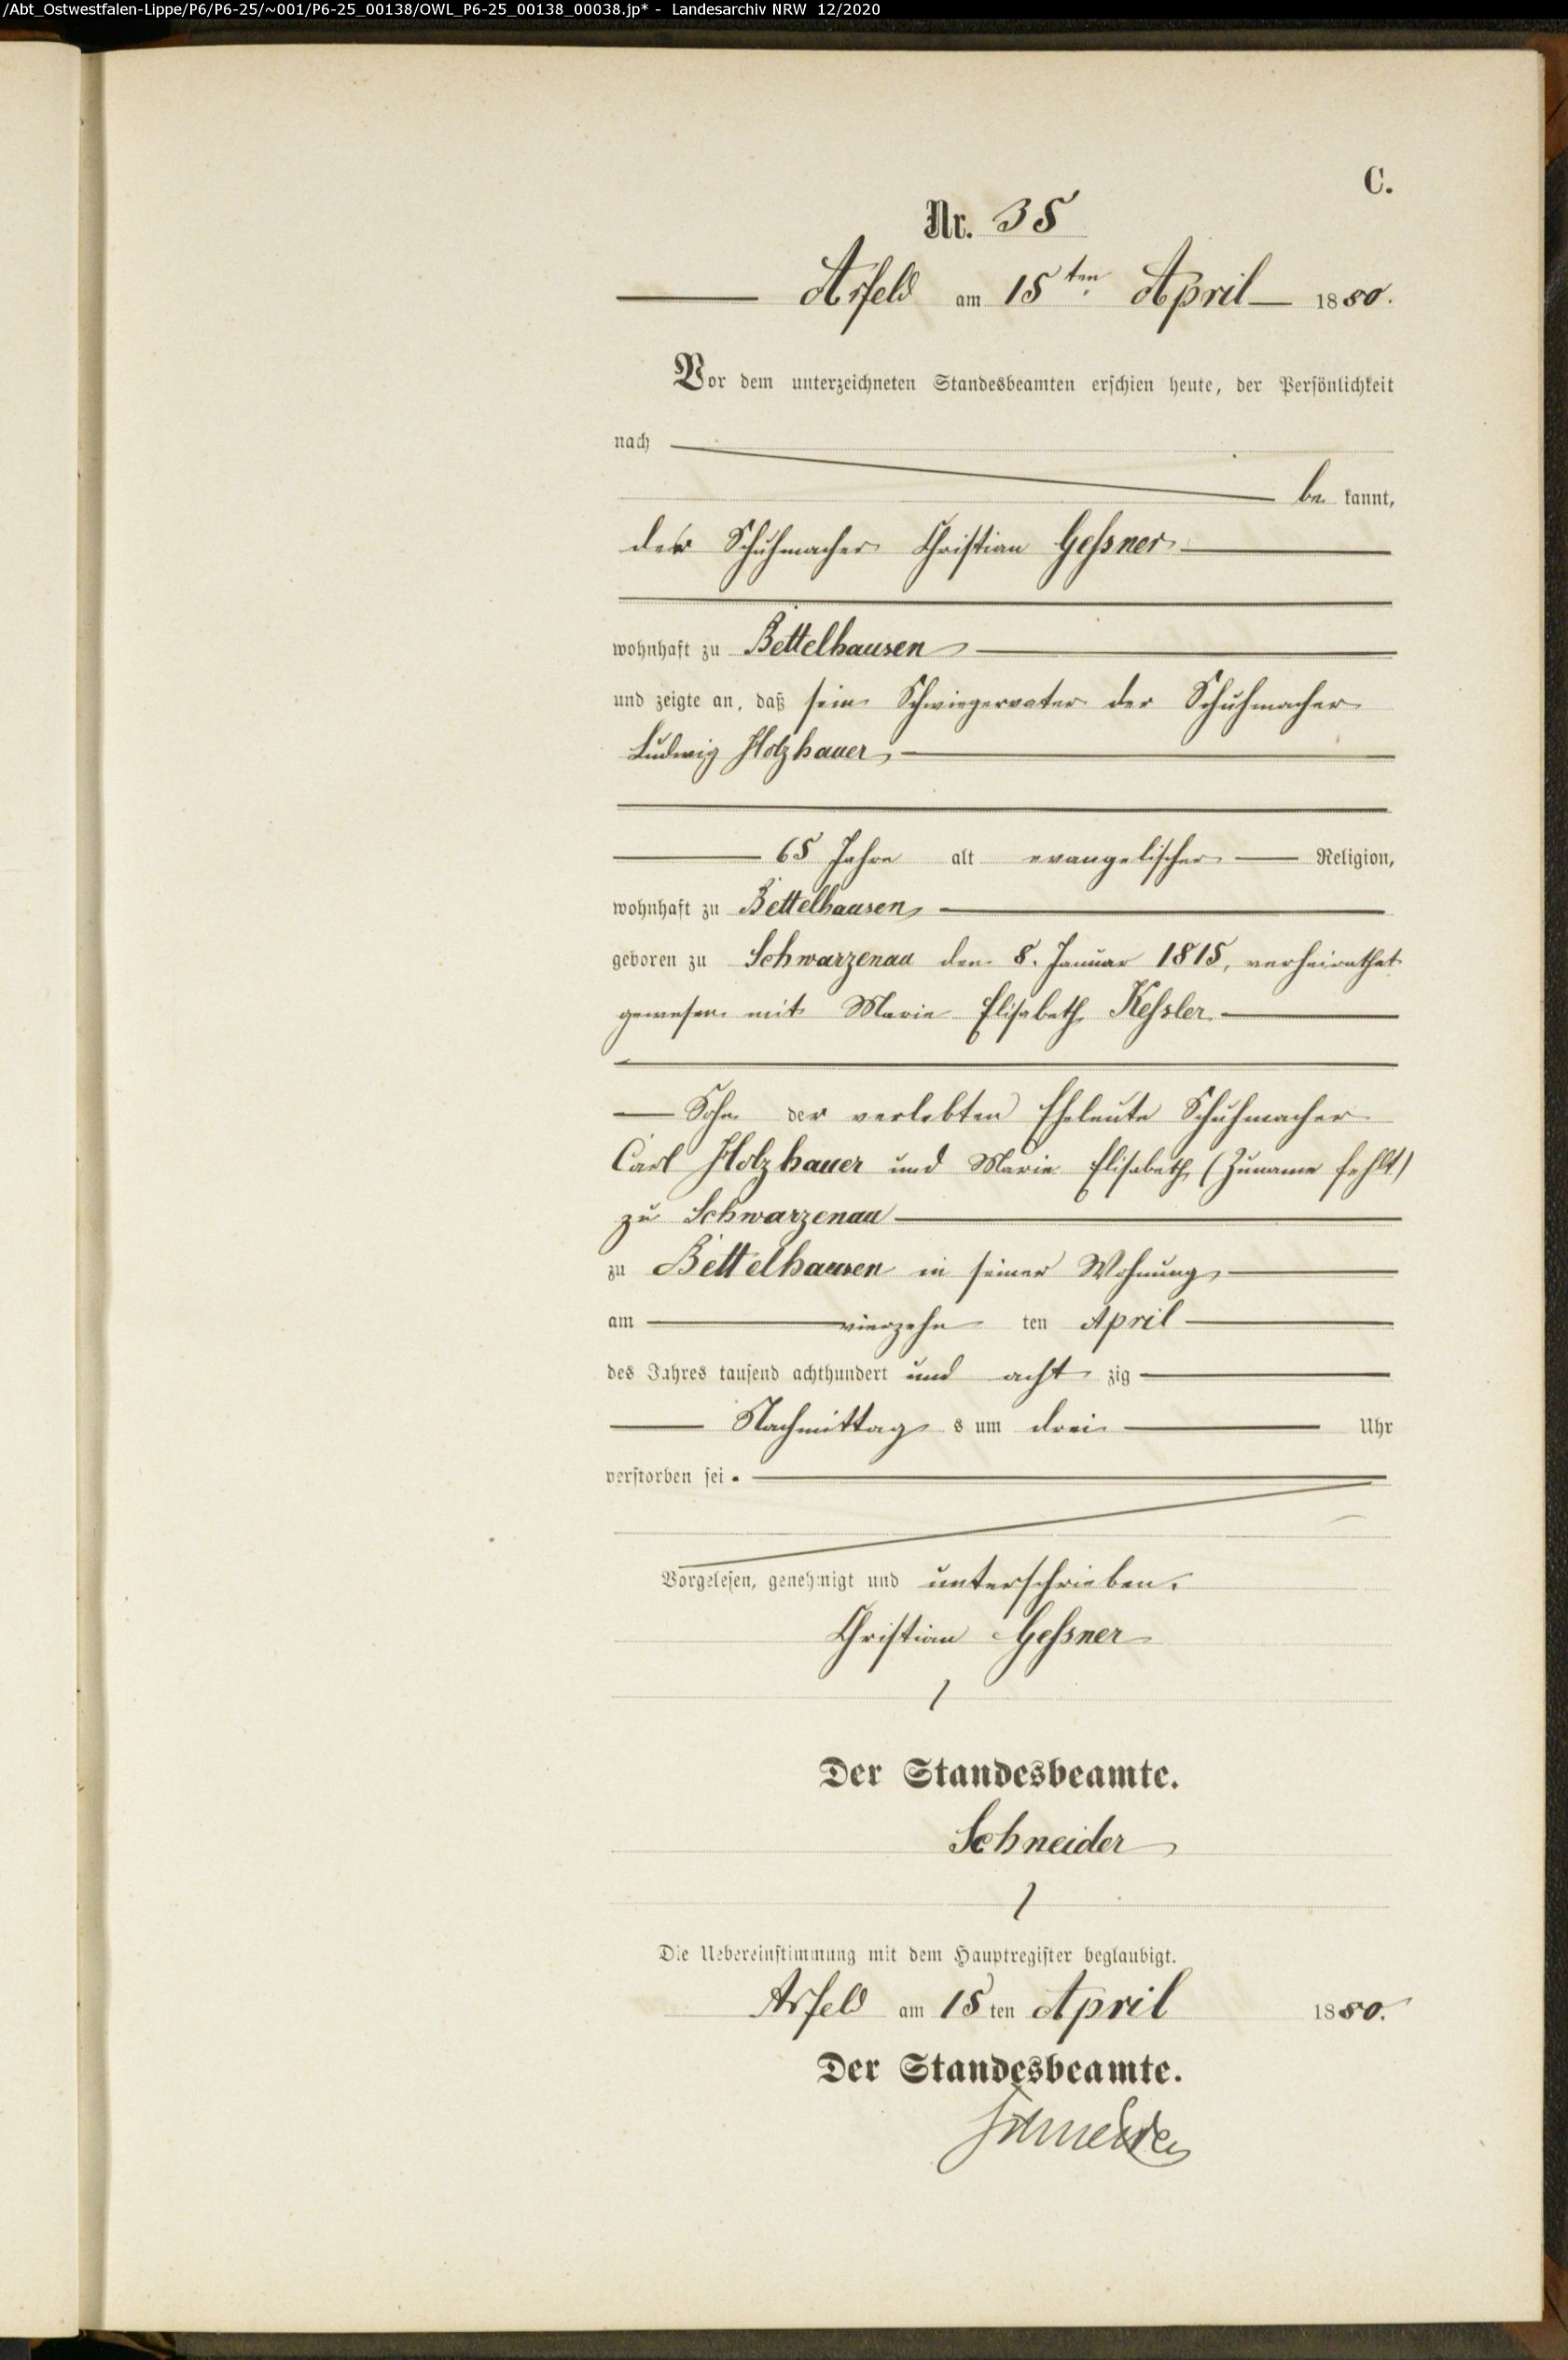 /Abt_Ostwestfalen-Lippe/P6/P6-25/~001/P6-25_00138/OWL_P6-25_00138_00038.jp* - Landesarchiv NRW 12/2020
C.
Nr. 35
Arfeld am 15ten April 1880.
Vor dem unterzeichneten Standesbeamten erschien heute, der Persönlichkeit
nach
be kannt,
der Schuhmacher Christian Geßner
wohnhaft zu Bettelhausen
und zeigte an, daß sein Schwiegervater der Schuhmacher
Ludwig Holzhauer,
65 Jahre alt evangelischer Religion,
wohnhaft zu Bettelhausen,
geboren zu Schwarzenau den 8. Januar 1815, verheirathet
gewesen mit Marie Elisabeth Keßler
Sohn der verlebten Eheleute Schuhmacher
Carl Holzhauer und Marie Elisabeth (Zuname fehlt)
zu Schwarzenau
zu Bettelhausen in seiner Wohnung,
am vierzehn ten April
des Jahres tausend achthundert und acht zig
Nachmittag s um drei Uhr
verstorben sei.
Vorgelesen, genehmigt und unterschrieben.
Christian Geßner
Der Standesbeamte.
Schneider
Die Uebereinstimmung mit dem Hauptregister beglaubigt.
Arfeld am 15 ten April 1880.
Der Standesbeamte.
Schneider